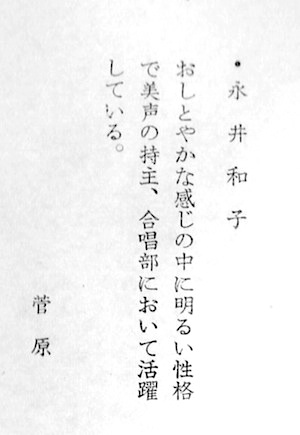 ・永井和子
おしとやかな感じの中に明るい性格
で美声の持主、合唱部において活躍
している。
菅原